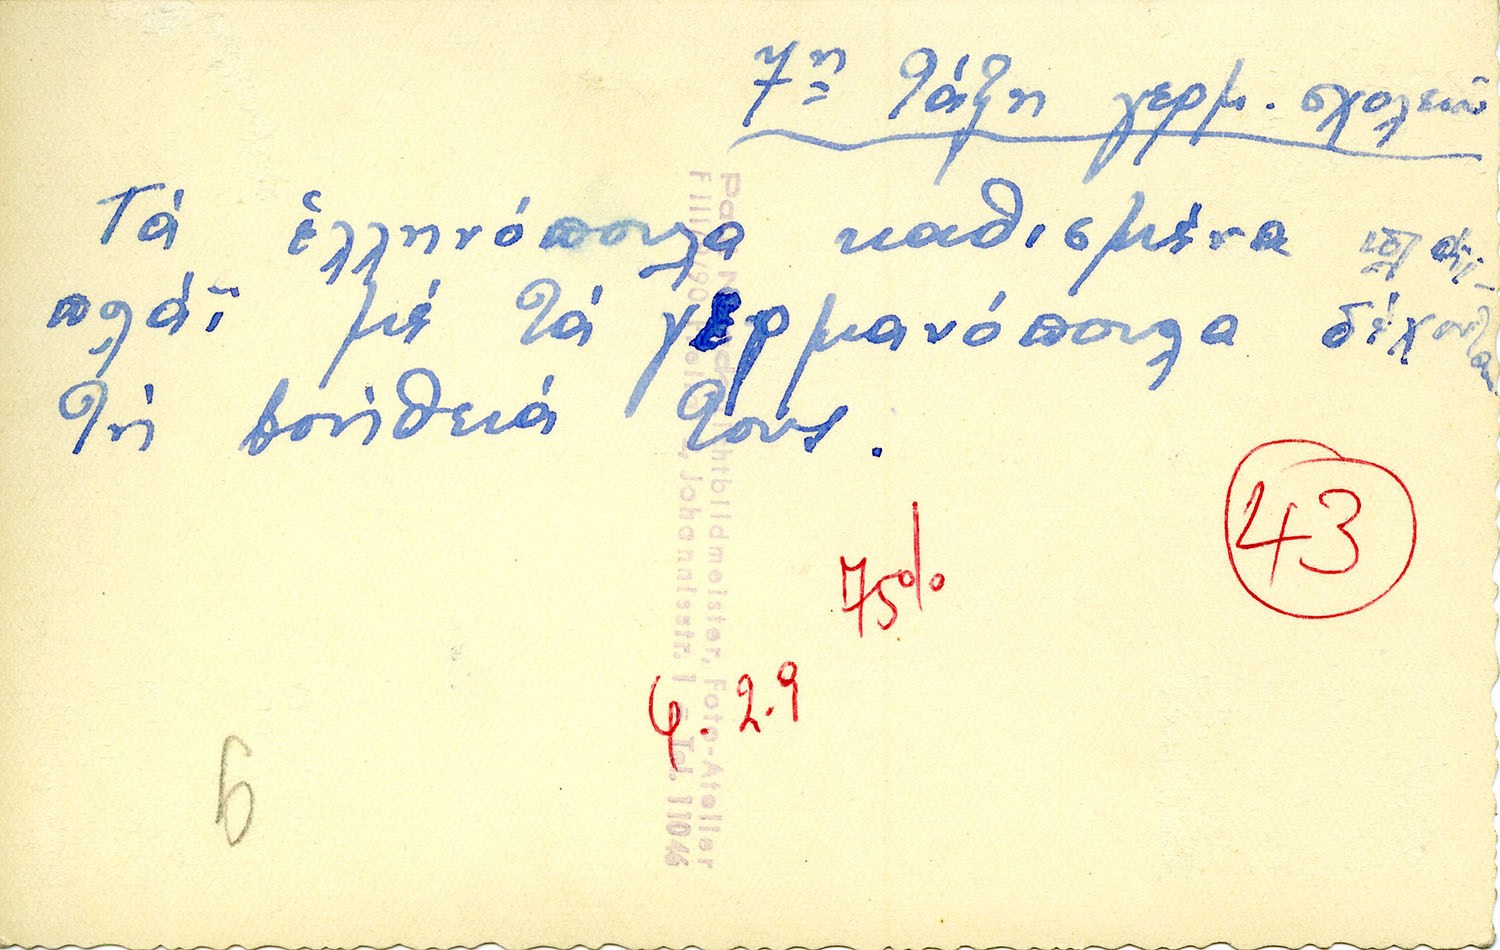 7η τάξη γερμ. σχολείου
Τά ἑλληνόπουλα καθισμένα
πλάϊ μέ τά γερμανόπουλα δέχονται
τή βοήθειά τους.
43
75%
φ. 2.9
6
htbildmeister, Foto-Atelier
Johannisstr. 1 Tel. 11046